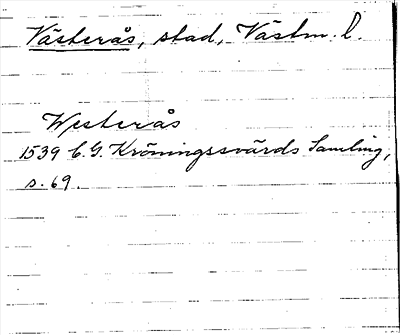 Västerås, stad, Västm. l.
Westerås
1539 C. G. Kröningssvärds Samling,
s. 69.